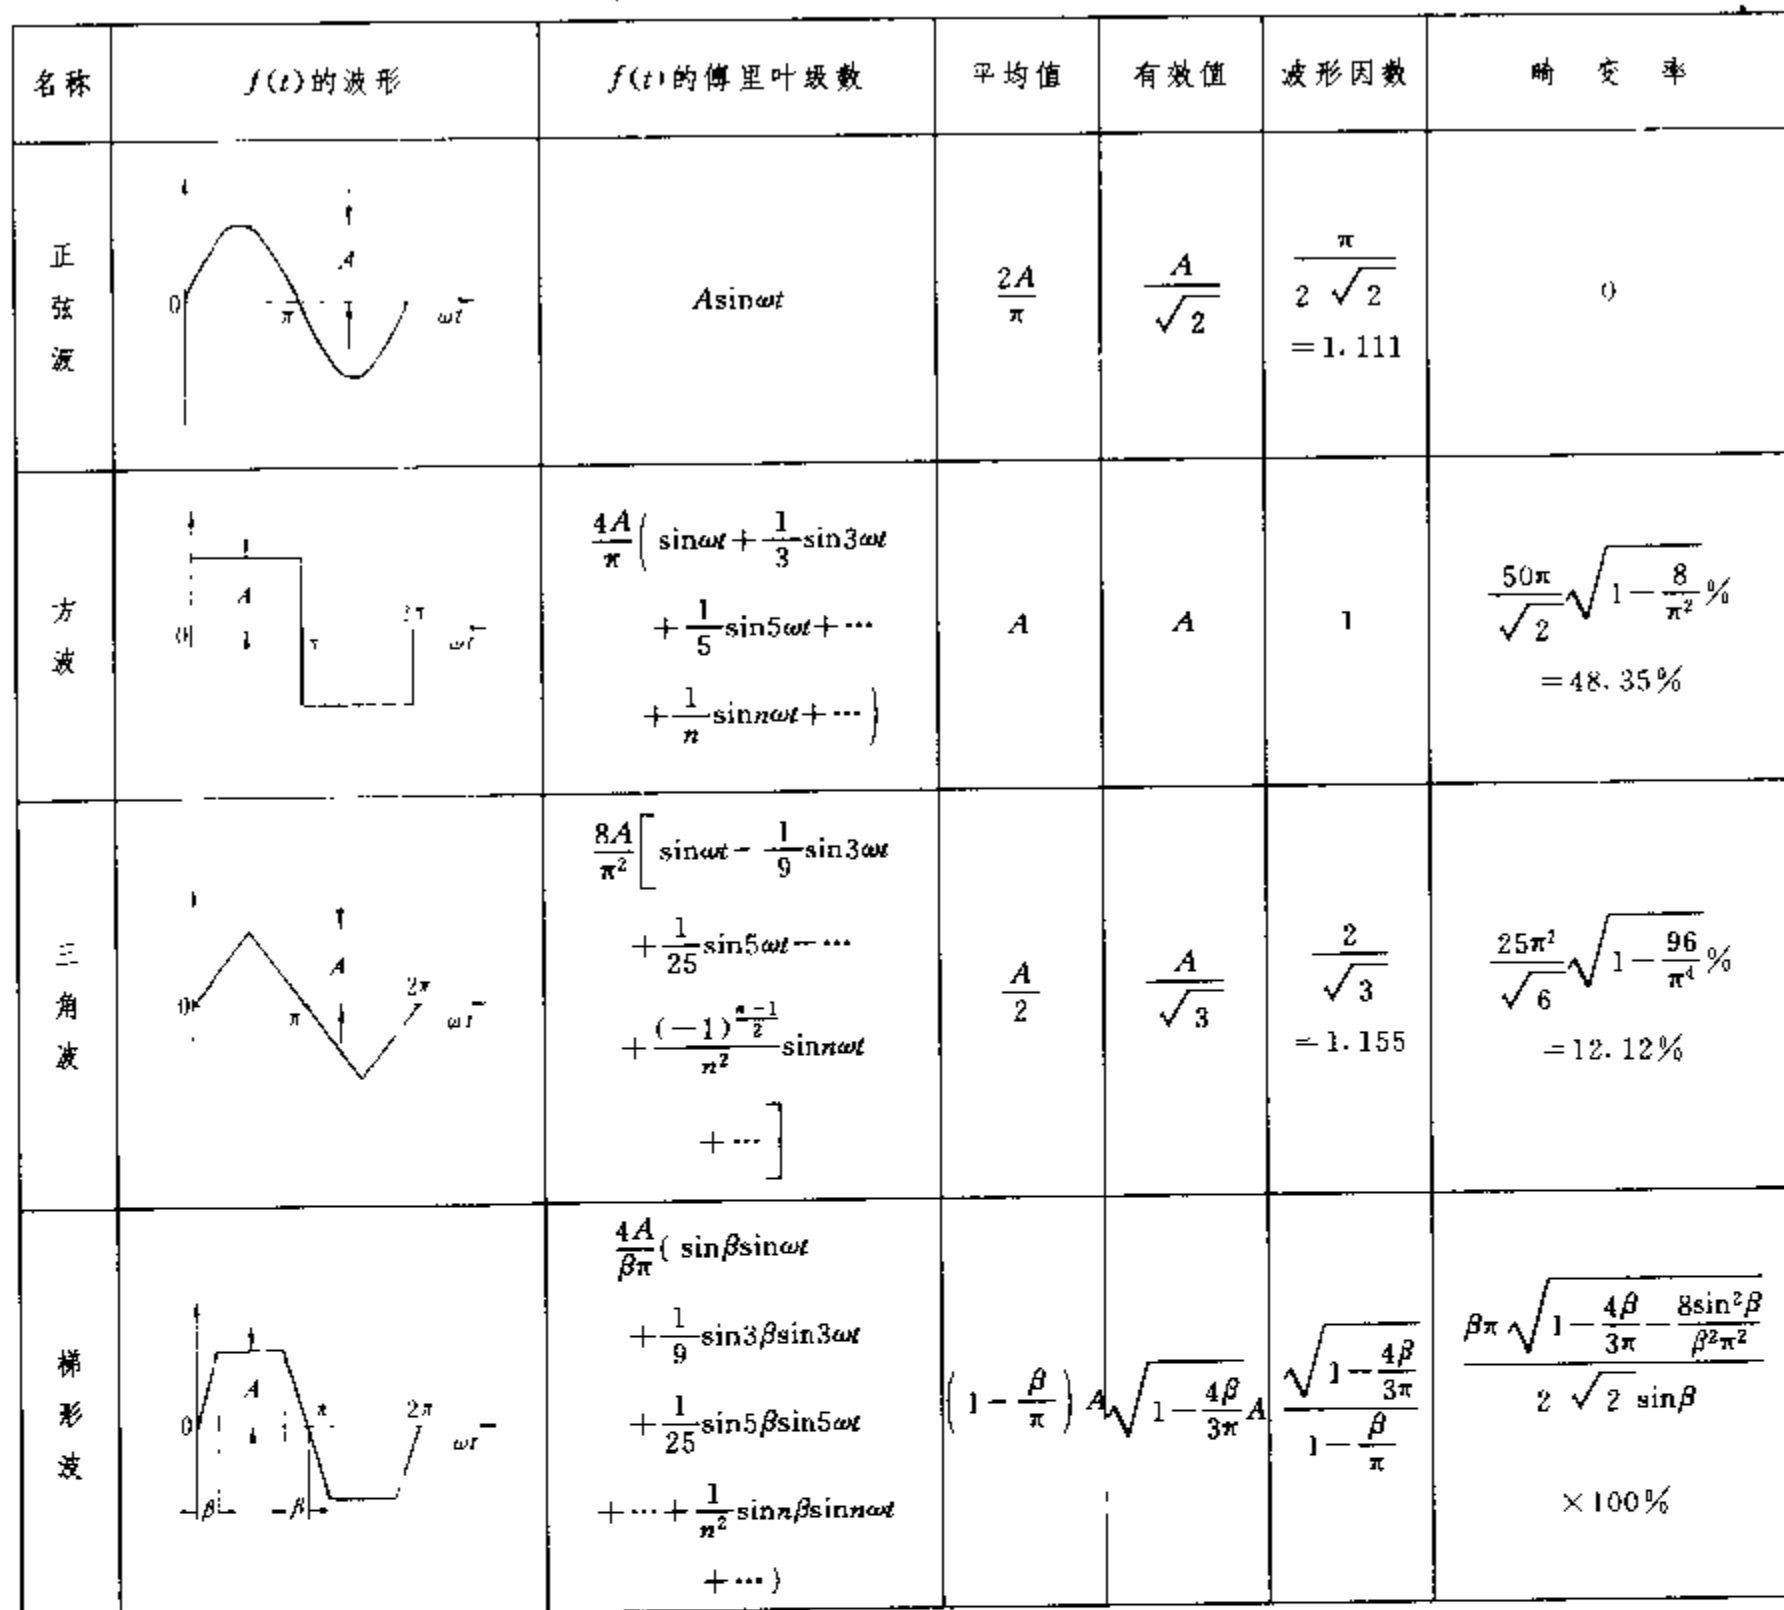 名称 f(t)的波形 f(t)的傅里叶级数 平均值 有效值 波形因数 畸变率
正弦波
A
0 π ωt
Asinωt
2A/π
A/√2
π/(2√2)
=1.111
0
方波
A
0 π 2π ωt
4A/π(sinωt+1/3 sin3ωt
+1/5 sin5ωt+⋯
+1/n sinnωt+⋯)
A
A
1
50π/√2 √(1-8/π²)%
=48.35%
三角波
A
0 π 2π ωt
8A/π²[sinωt-1/9 sin3ωt
+1/25 sin5ωt-⋯
+(-1)^((n-1)/2)/n² sinnωt
+⋯]
A/2
A/√3
2/√3
=1.155
25π²/√6 √(1-96/π⁴)%
=12.12%
梯形波
A
0 π 2π ωt
β β
4A/βπ(sinβsinωt
+1/9 sin3βsin3ωt
+1/25 sin5βsin5ωt
+⋯+1/n² sinnβsinnωt
+⋯)
(1-β/π)A
√(1-4β/3π)A
√(1-4β/3π)/(1-β/π)
βπ√(1-4β/3π-8sin²β/β²π²)/(2√2 sinβ)
×100%